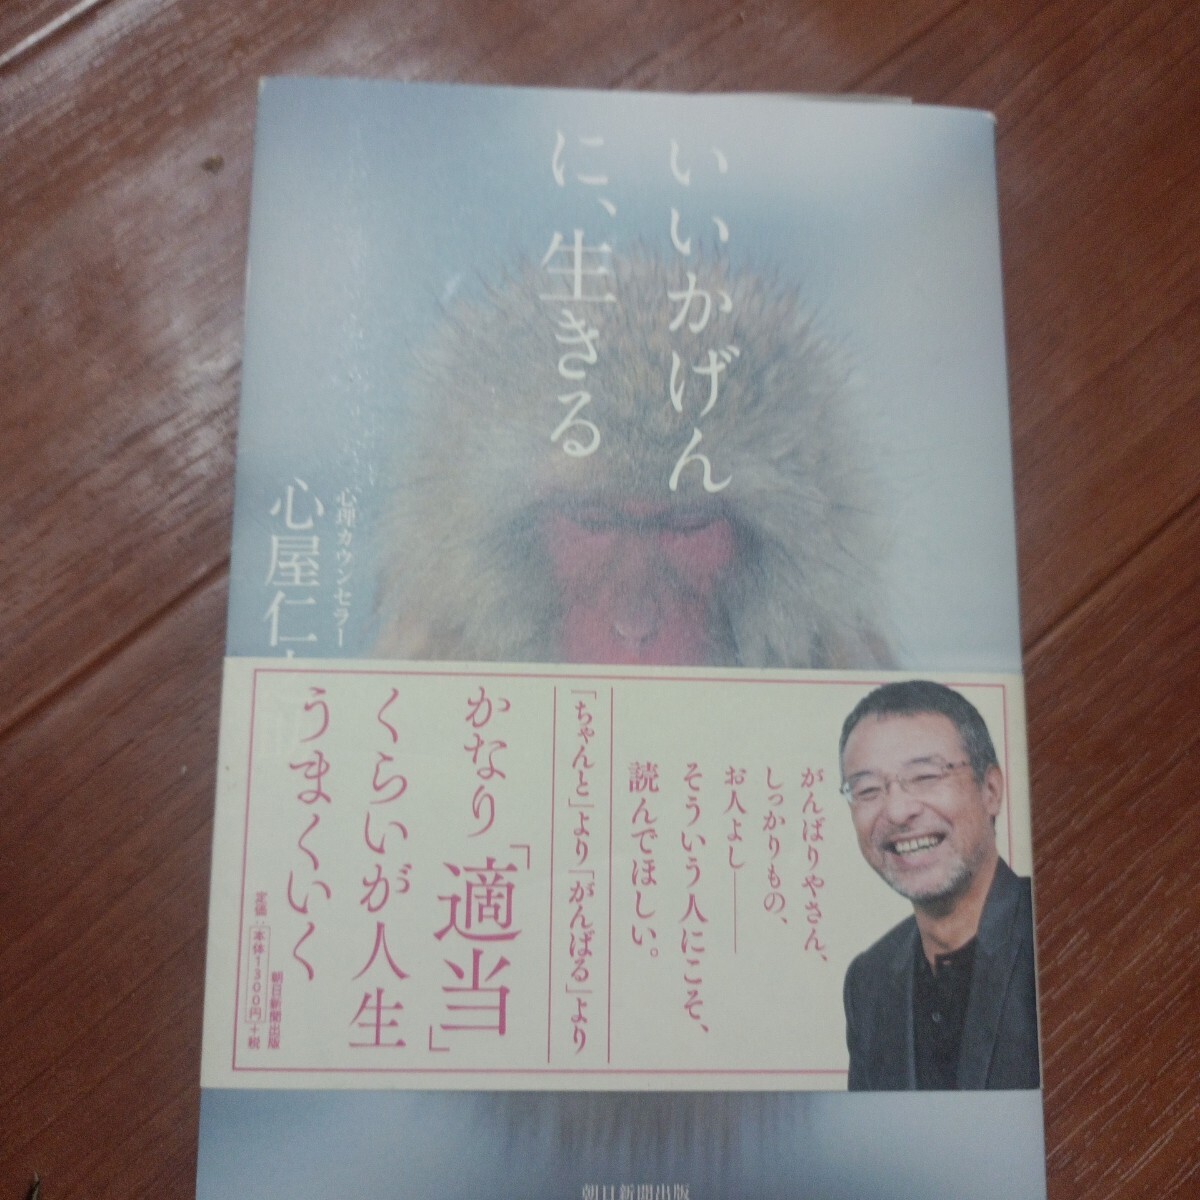 いいかげん
に、生きる
心理カウンセラー
心屋仁
がんばりやさん、
しっかりもの、
お人よし――
そういう人にこそ、
読んでほしい。
「ちゃんと」より「がんばる」より
かなり「適当」
くらいが人生
うまくいく
朝日新聞出版
定価:本体1300円+税
朝日新聞出版